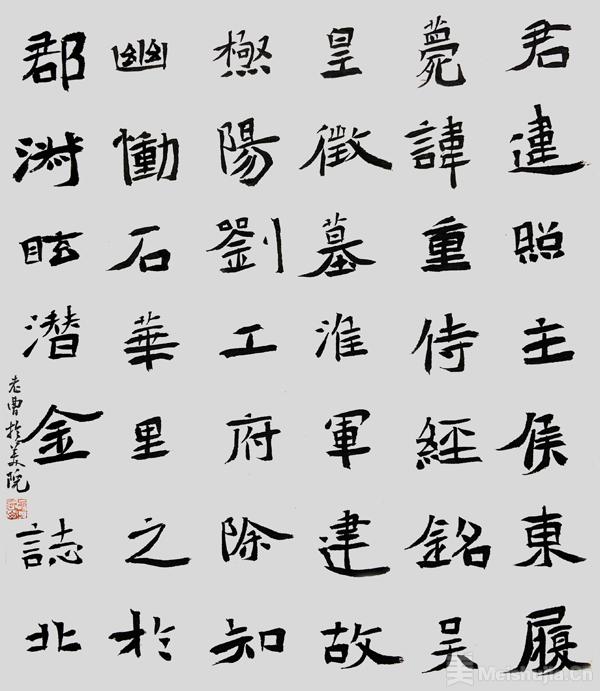 君建照主侯東履
薨諱重侍經銘吴
皇徵墓淮軍建故
極陽劉工府除知
幽慟石華里之於
郡渊眩潜金誌北
老曹於美院
美 Meishujia.cn